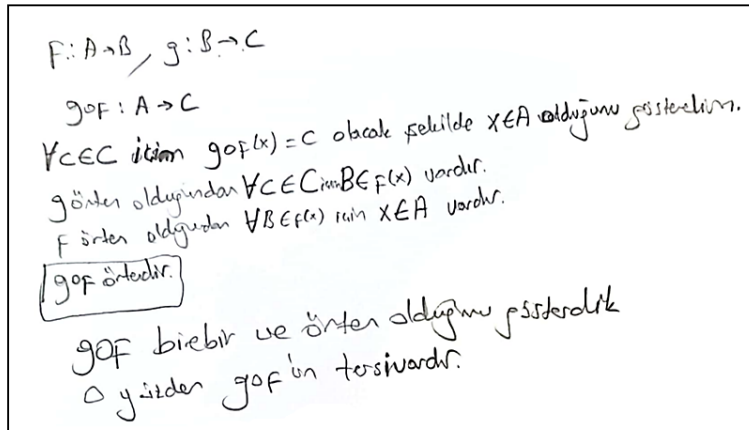 F: A→B, g: B→C
gof : A→C
∀c∈C için gof(x) = c olacak şekilde x∈A olduğunu gösterelim.
g örten olduğundan ∀c∈C için B∈f(x) vardır.
F örten olduğundan ∀B∈f(x) için x∈A vardır.
gof örtendir.
gof birebir ve örten olduğunu gösterdik
O yüzden gof'ün tersi vardır.